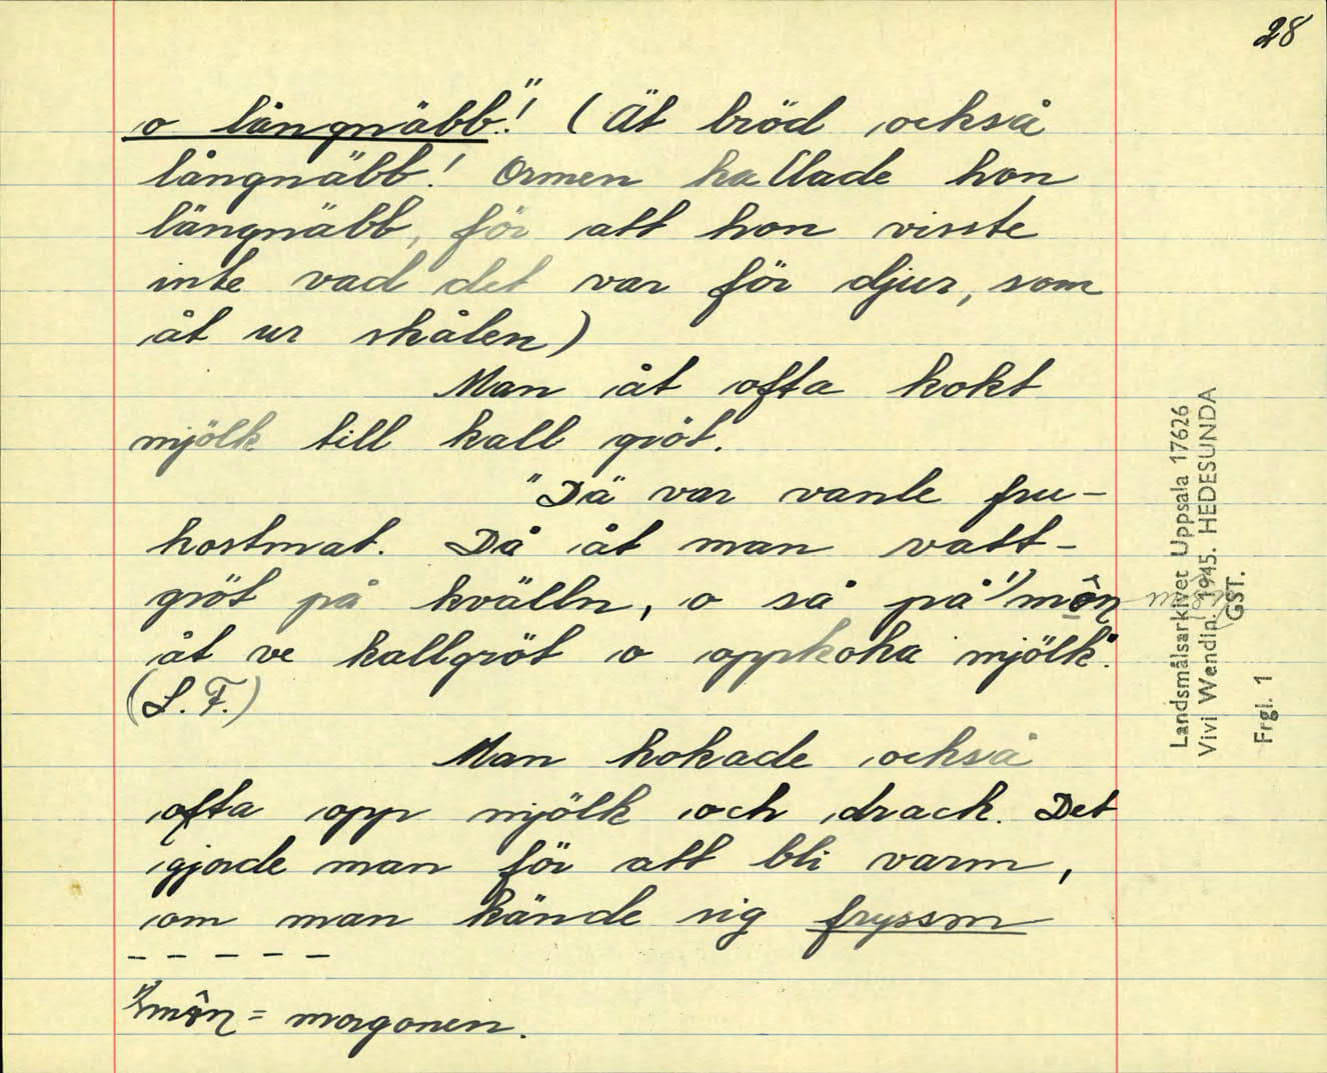 28
o långnäbb"! (Ät bröd också
långnäbb! Ormen kallade hon
långnäbb, för att hon visste
inte vad det var för djur, som
åt ur skålen)
Man åt ofta kokt
mjölk till kall gröt.
"Dä" var vanle fru-
kostmat. Då åt man vatt-
gröt på kvälln, o så på 1) môn
åt ve kallgröt o oppkoka mjölk".
(L. F.)
Man kokade också
ofta opp mjölk och drack. Det
gjorde man för att bli varm,
om man kände sig fryssm
- - - - -
1) môn = morgonen.
Landsmålsarkivet Uppsala 17626
Vivi Wendin. 1945. HEDESUNDA
GST.
Frgl. 1